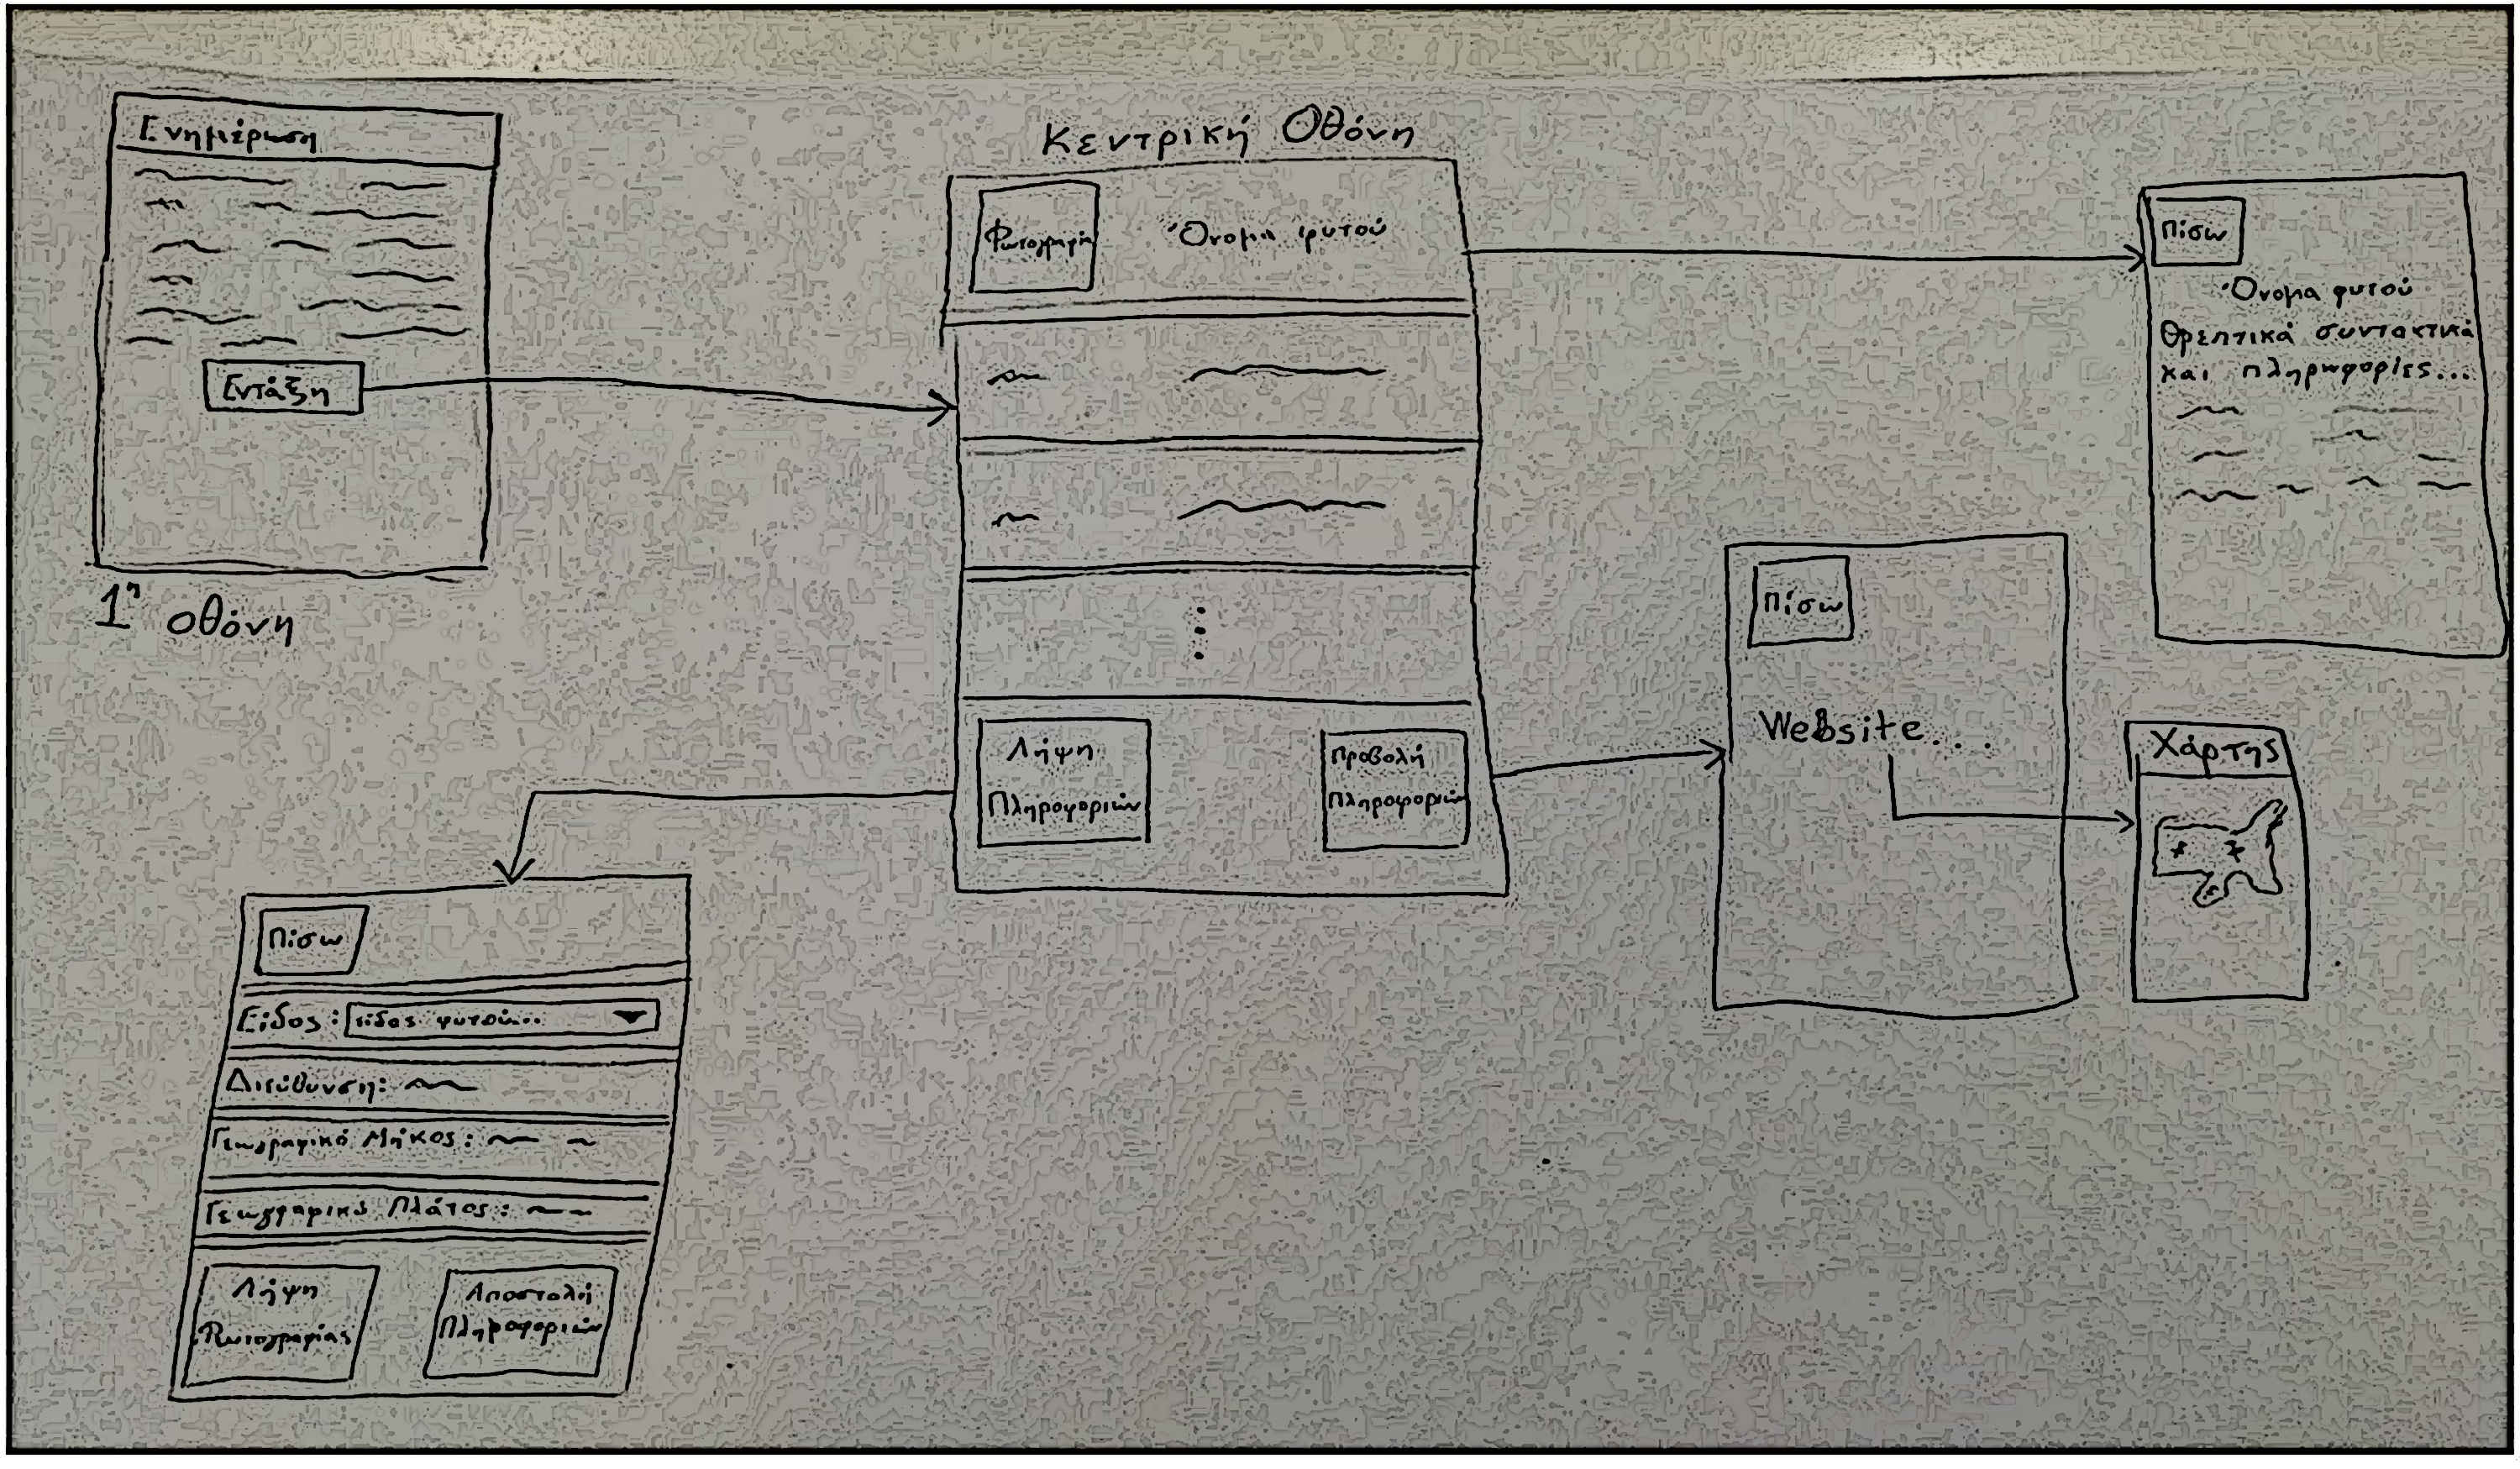 Ενημέρωση
Εντάξη
1η οθόνη
Κεντρική Οθόνη
Φωτογραφία
Όνομα φυτού
Λήψη
Πληροφοριών
Προβολή
Πληροφοριών
Πίσω
Όνομα φυτού
Θρεπτικά συντακτικά
και πληρωφορίες...
Πίσω
Website...
Χάρτης
Πίσω
Είδος: είδος φυτού...
Διεύθυνση:
Γεωγραφικό Μήκος:
Γεωγραφικό Πλάτος:
Λήψη
Φωτογραφίας
Αποστολή
Πληροφοριών